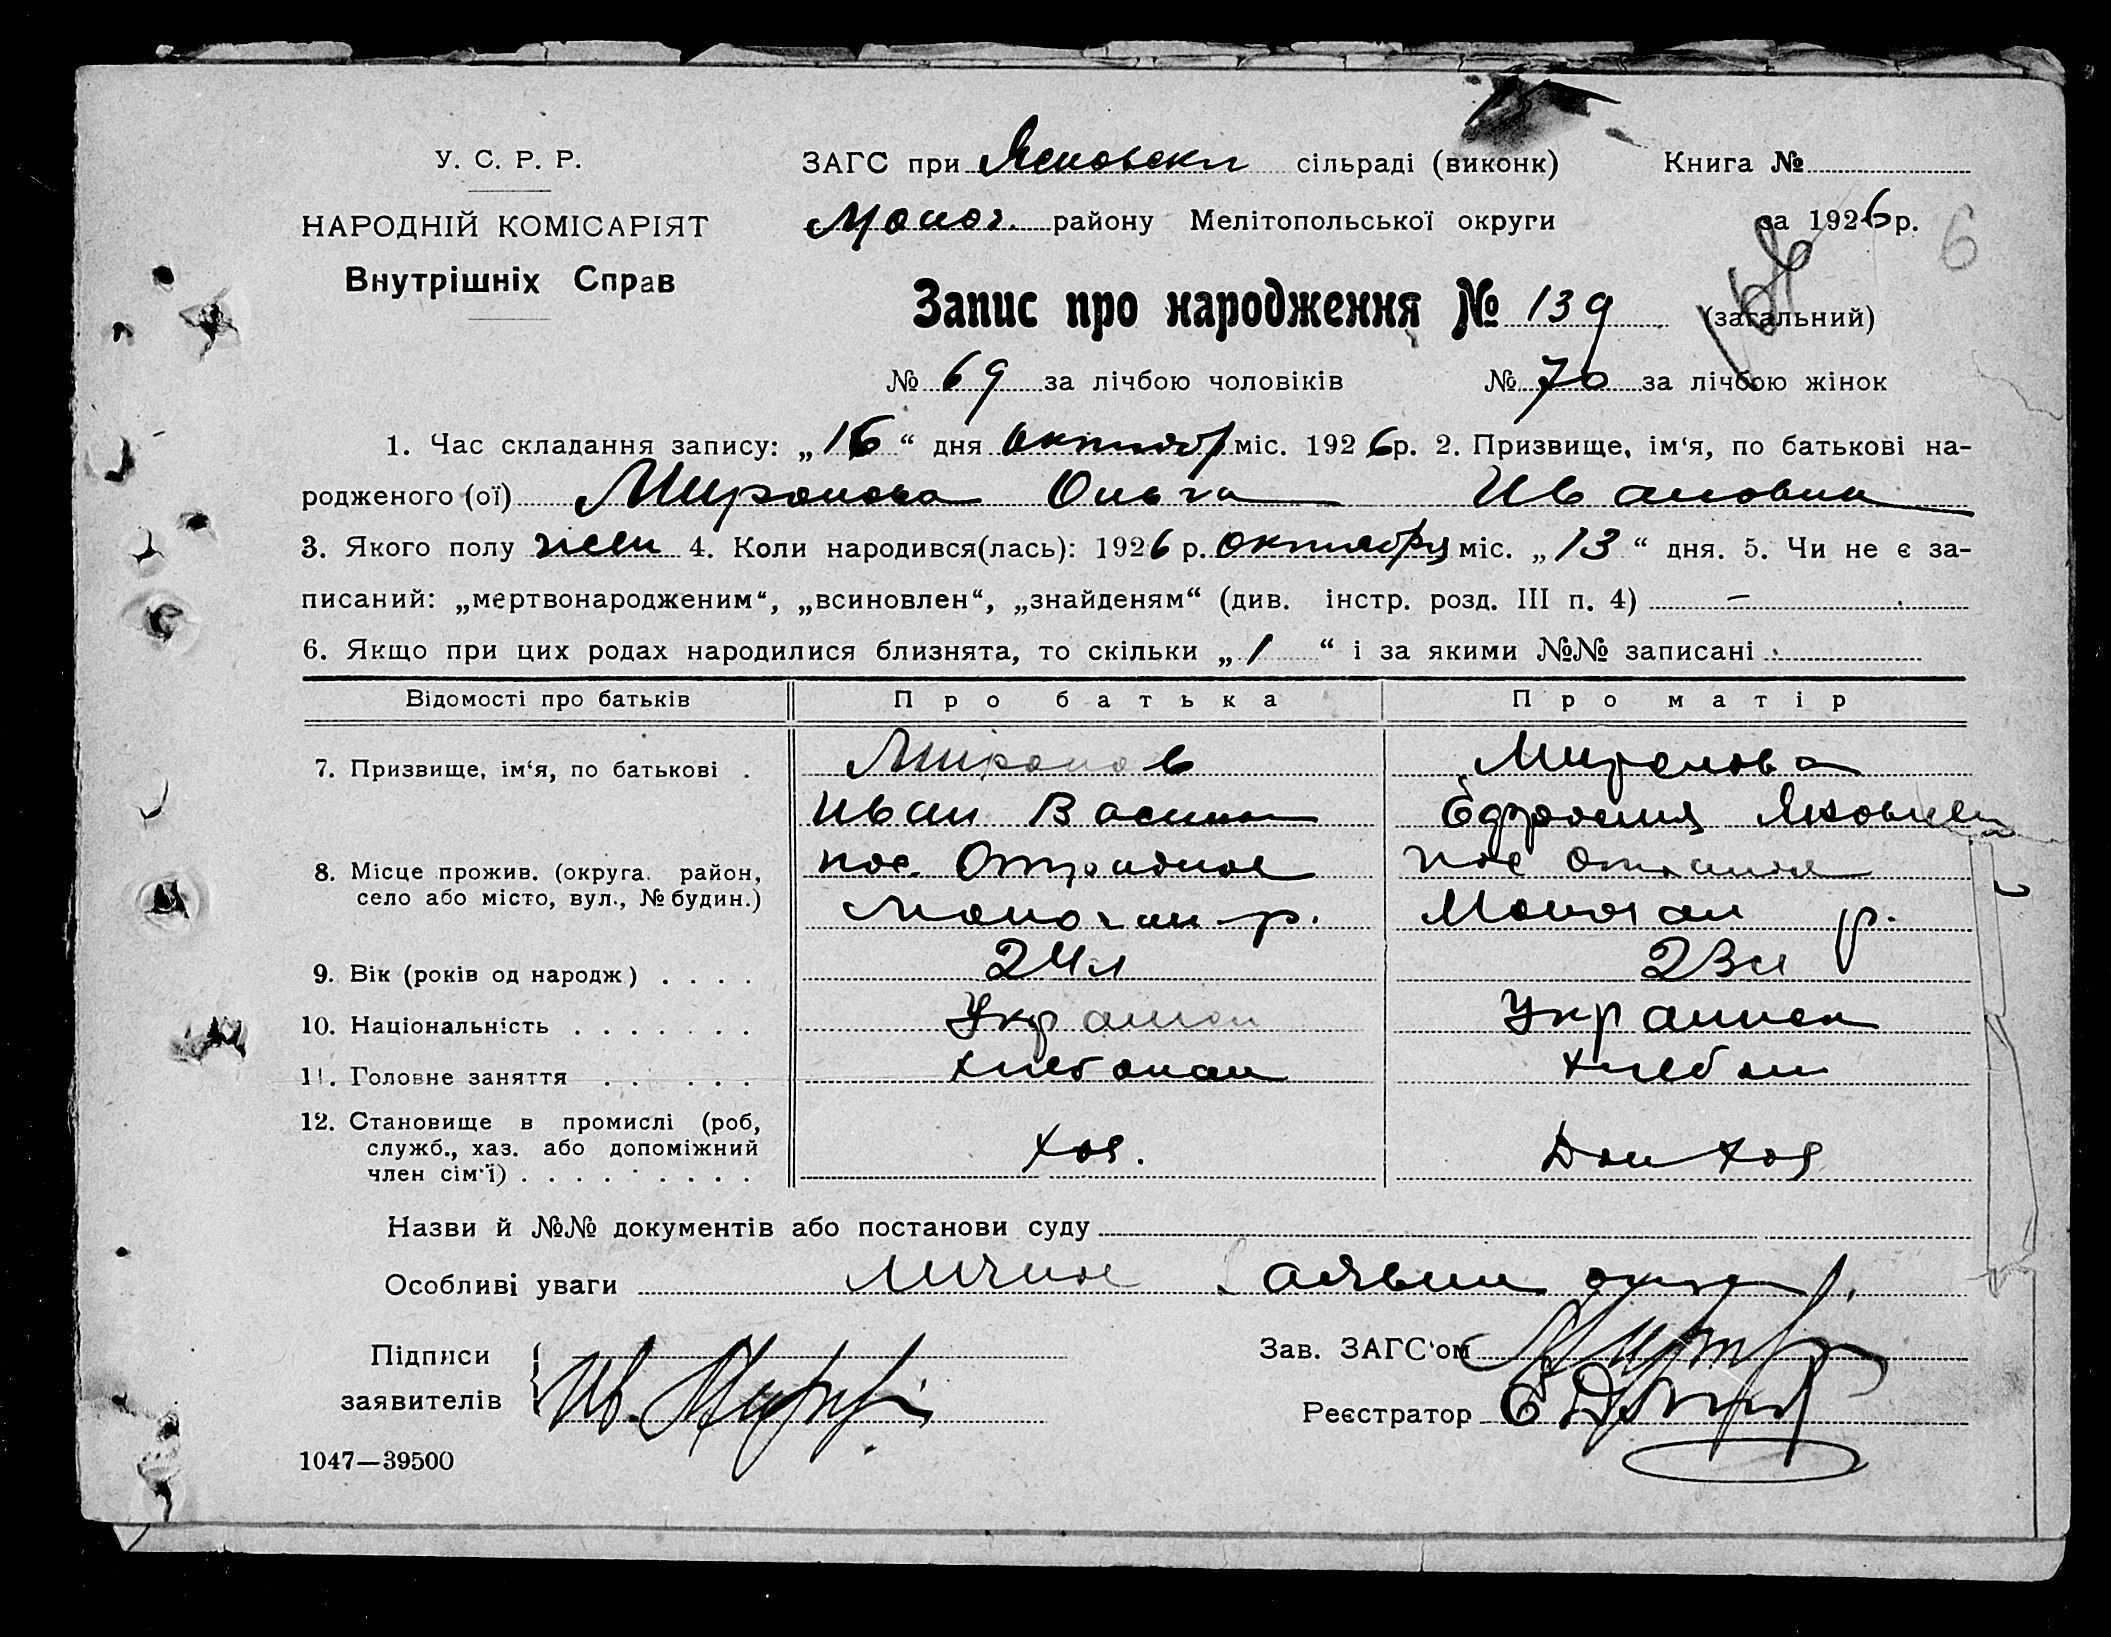 У. С. Р. Р.
НАРОДНІЙ КОМІСАРІЯТ
Внутрішніх Справ
ЗАГС при сільраді (виконк) Книга №
району Мелітопольської округи за 1926 р. 6
Запис про народження № 139 (загальний)
№ 69 за лічбою чоловіків № 70 за лічбою жінок
1. Час складання запису: „16“ дня октябр міс. 1926 р. 2. Призвище, ім‘я, по батькові на-
родженого (ої) Миронова Ольга Ивановна
3. Якого полу жен 4. Коли народився(лась): 1926 р. октября міс. „13“ дня. 5. Чи не є за-
писаний: „мертвонародженим“, „всиновлен“, „знайденям“ (див. інстр. розд. III п. 4) —
6. Якщо при цих родах народилися близнята, то скільки „1“ і за якими №№ записані
Відомості про батьків Про батька Про матір
7. Призвище, ім‘я, по батькові . Миронов Миронова
Иван Васил Ефросиния Яковлев
8. Місце прожив. (округа. район, пос. Отрадное пос
село або місто, вул., № будин.) р. р.
9. Вік (років од народж) . . . . 24 л 23 л
10. Національність . . . . . . . Украин Украинск
11. Головне заняття . . . . . . хлебопаш хлебоп
12. Становище в промислі (роб,
служб., хаз. або допоміжний хоз. Дом хоз
член сім‘ї) . . . . . . . . .
Назви й №№ документів або постанови суду
Особливі уваги Личное заявлен отца
Підписи Зав. ЗАГС‘ом
заявителів Ив. Реєстратор
1047—39500